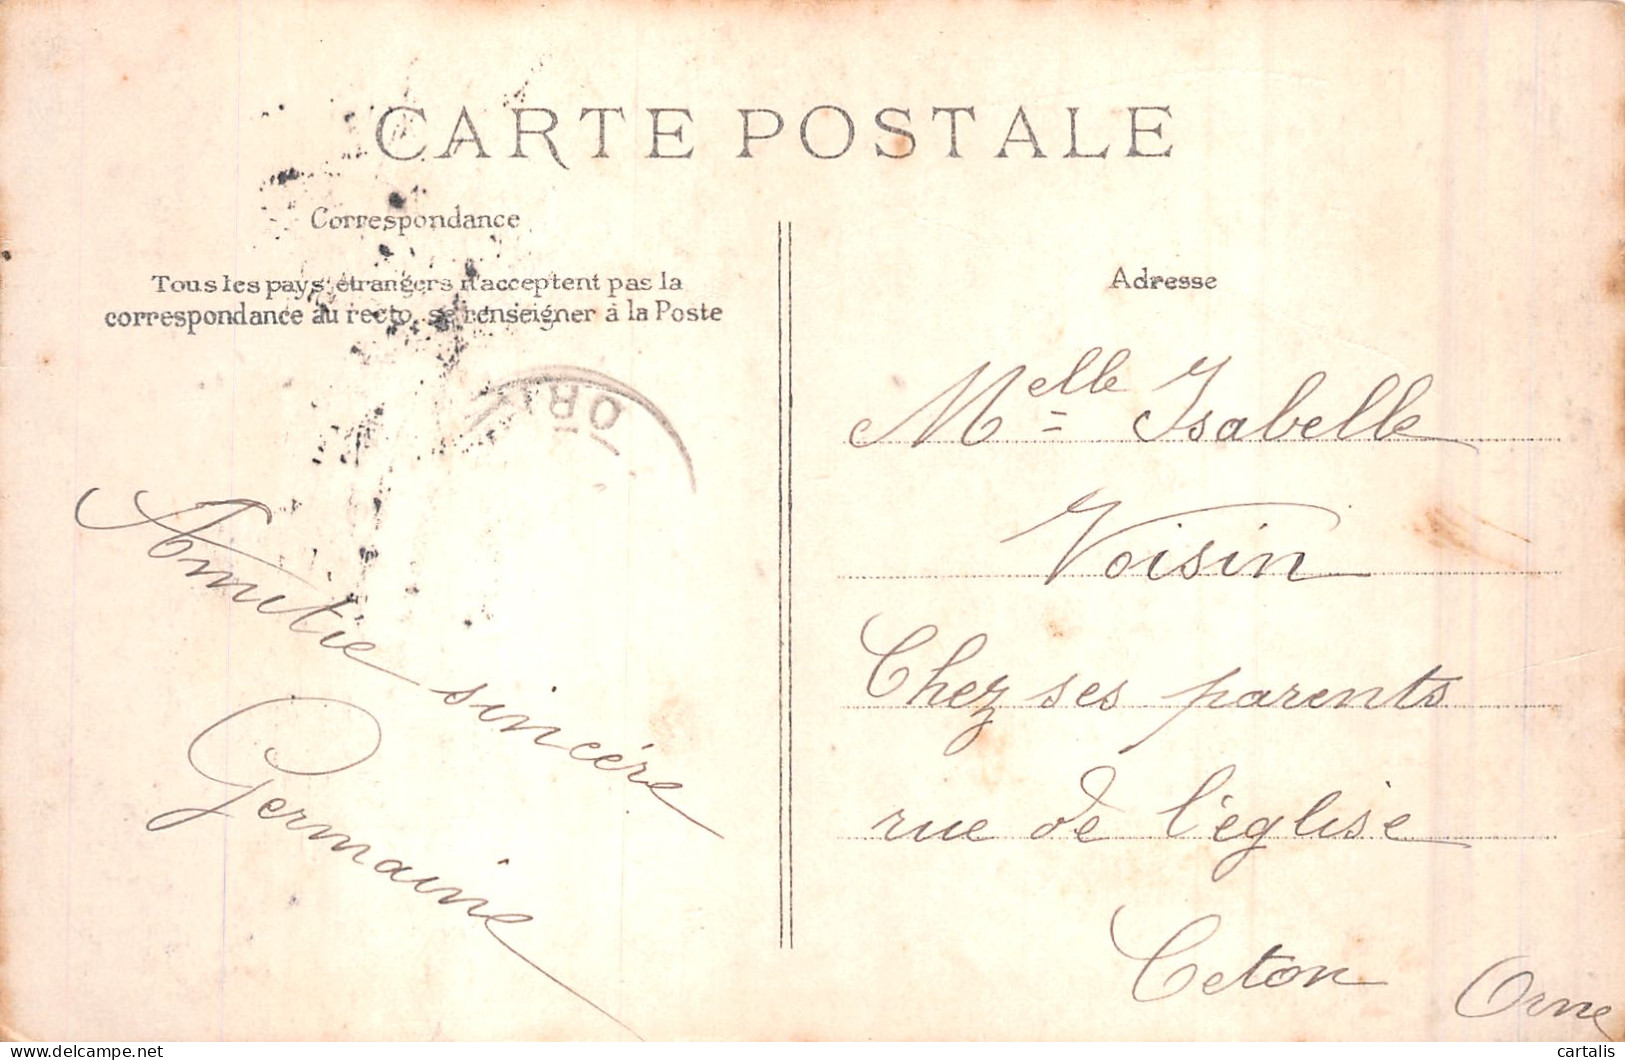 CARTE POSTALE
Correspondance
Tous les pays étrangers n'acceptent pas la
correspondance au recto, se renseigner à la Poste
Amitié sincère
Germaine
Adresse
Melle Isabelle
Voisin
Chez ses parents
rue de l'église
Ceton Orne
delcampe.net
cartalis